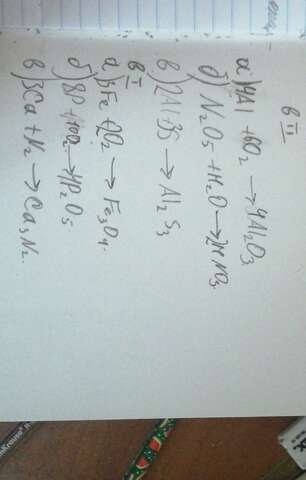 в II
а) 4Al + 6O₂ → 4Al₂O₃
б) N₂O₅ + H₂O → 2HNO₃
в) 2Al + 3S → Al₂S₃
в I
а) 3Fe + 2O₂ → Fe₃O₄
б) 8P + 10O₂ → 4P₂O₅
в) 3Ca + N₂ → Ca₃N₂